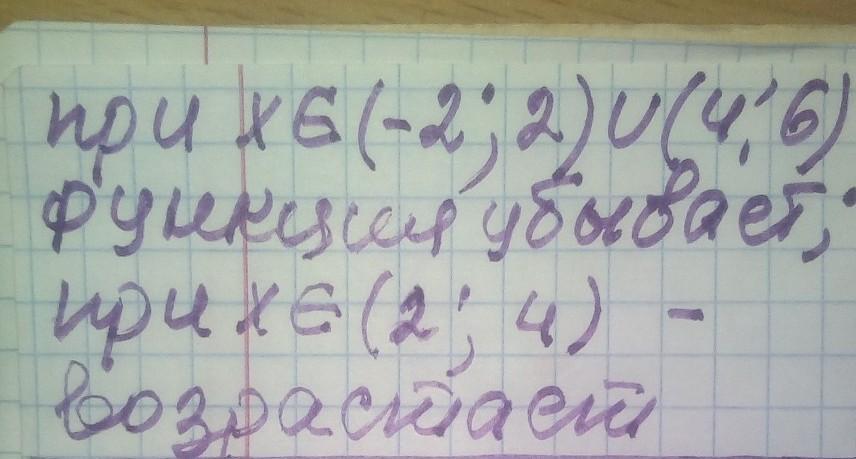 при x∈(-2; 2)∪(4; 6)
функция убывает;
при x∈(2; 4) -
возрастает